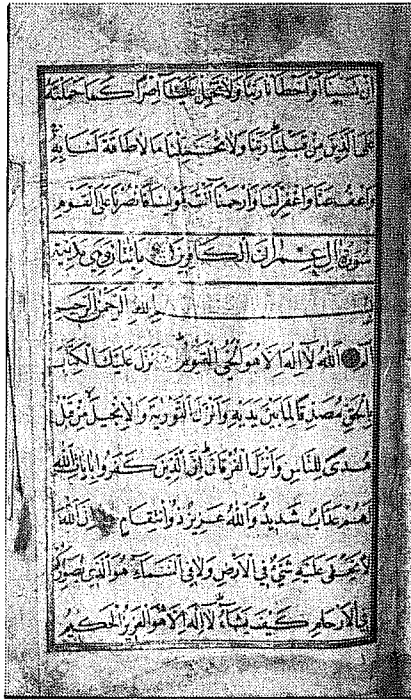 اِنْ نَسِينَا اَوْ اَخْطَأْنَا رَبَّنَا وَلَا تَحْمِلْ عَلَيْنَا اِصْرًا كَمَا حَمَلْتَهُ
عَلَى الَّذِينَ مِنْ قَبْلِنَا رَبَّنَا وَلَا تُحَمِّلْنَا مَا لَا طَاقَةَ لَنَا بِهِ
وَاعْفُ عَنَّا وَاغْفِرْ لَنَا وَارْحَمْنَا اَنْتَ مَوْلٰينَا فَانْصُرْنَا عَلَى الْقَوْمِ
سورة ال عمران الْكَافِرِينَ مدنية
بِسْمِ اللهِ الرَّحْمٰنِ الرَّحِيمِ
الم اَللهُ لَا اِلٰهَ اِلَّا هُوَ الْحَيُّ الْقَيُّومُ نَزَّلَ عَلَيْكَ الْكِتَابَ
بِالْحَقِّ مُصَدِّقًا لِمَا بَيْنَ يَدَيْهِ وَاَنْزَلَ التَّوْرٰيةَ وَالْاِنْجِيلَ مِنْ قَبْلُ
هُدًى لِلنَّاسِ وَاَنْزَلَ الْفُرْقَانَ اِنَّ الَّذِينَ كَفَرُوا بِاٰيَاتِ اللهِ
لَهُمْ عَذَابٌ شَدِيدٌ وَاللهُ عَزِيزٌ ذُو انْتِقَامٍ اِنَّ اللهَ
لَا يَخْفٰى عَلَيْهِ شَيْءٌ فِي الْاَرْضِ وَلَا فِي السَّمَآءِ هُوَ الَّذِي يُصَوِّرُكُمْ
فِي الْاَرْحَامِ كَيْفَ يَشَآءُ لَا اِلٰهَ اِلَّا هُوَ الْعَزِيزُ الْحَكِيمُ